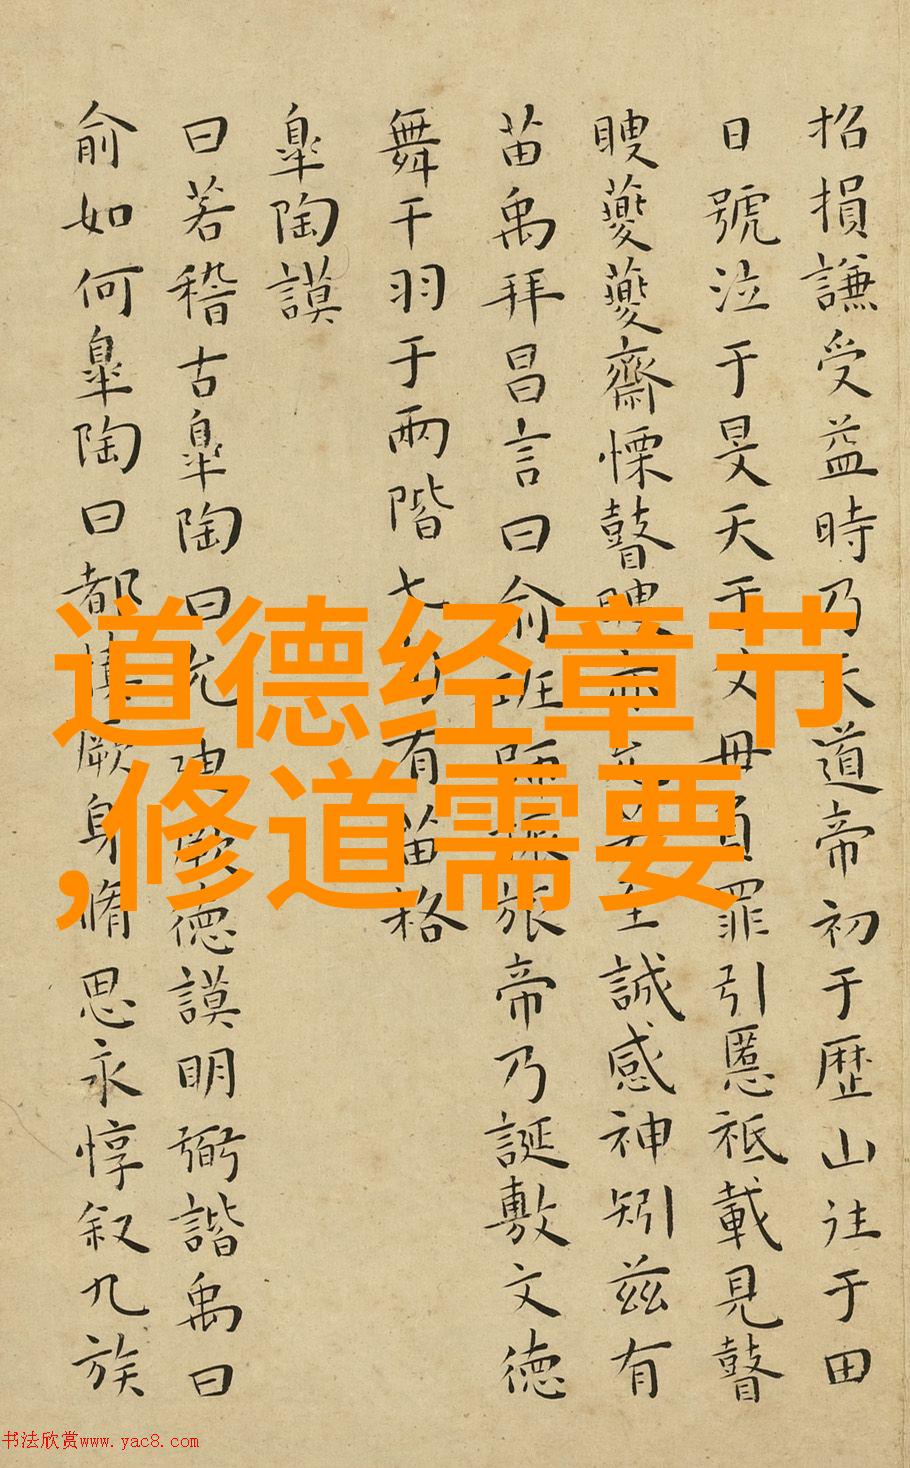 招損謙受益時乃天道帝初于歴山往于田
日號泣于旻天于父母負罪引慝祗載見瞽
瞍夔夔齋慄瞽瞍亦允若至誠感神矧兹有
苗禹拜昌言曰俞班師振旅帝乃誕敷文德
舞干羽于兩階七旬有苗格
臯陶謨
曰若稽古臯陶曰允迪厥德謨明弼諧禹曰
俞如何臯陶曰都慎厥身脩思永惇叙九族
道德经章节
,修道需要
书法欣赏www.yac8.com